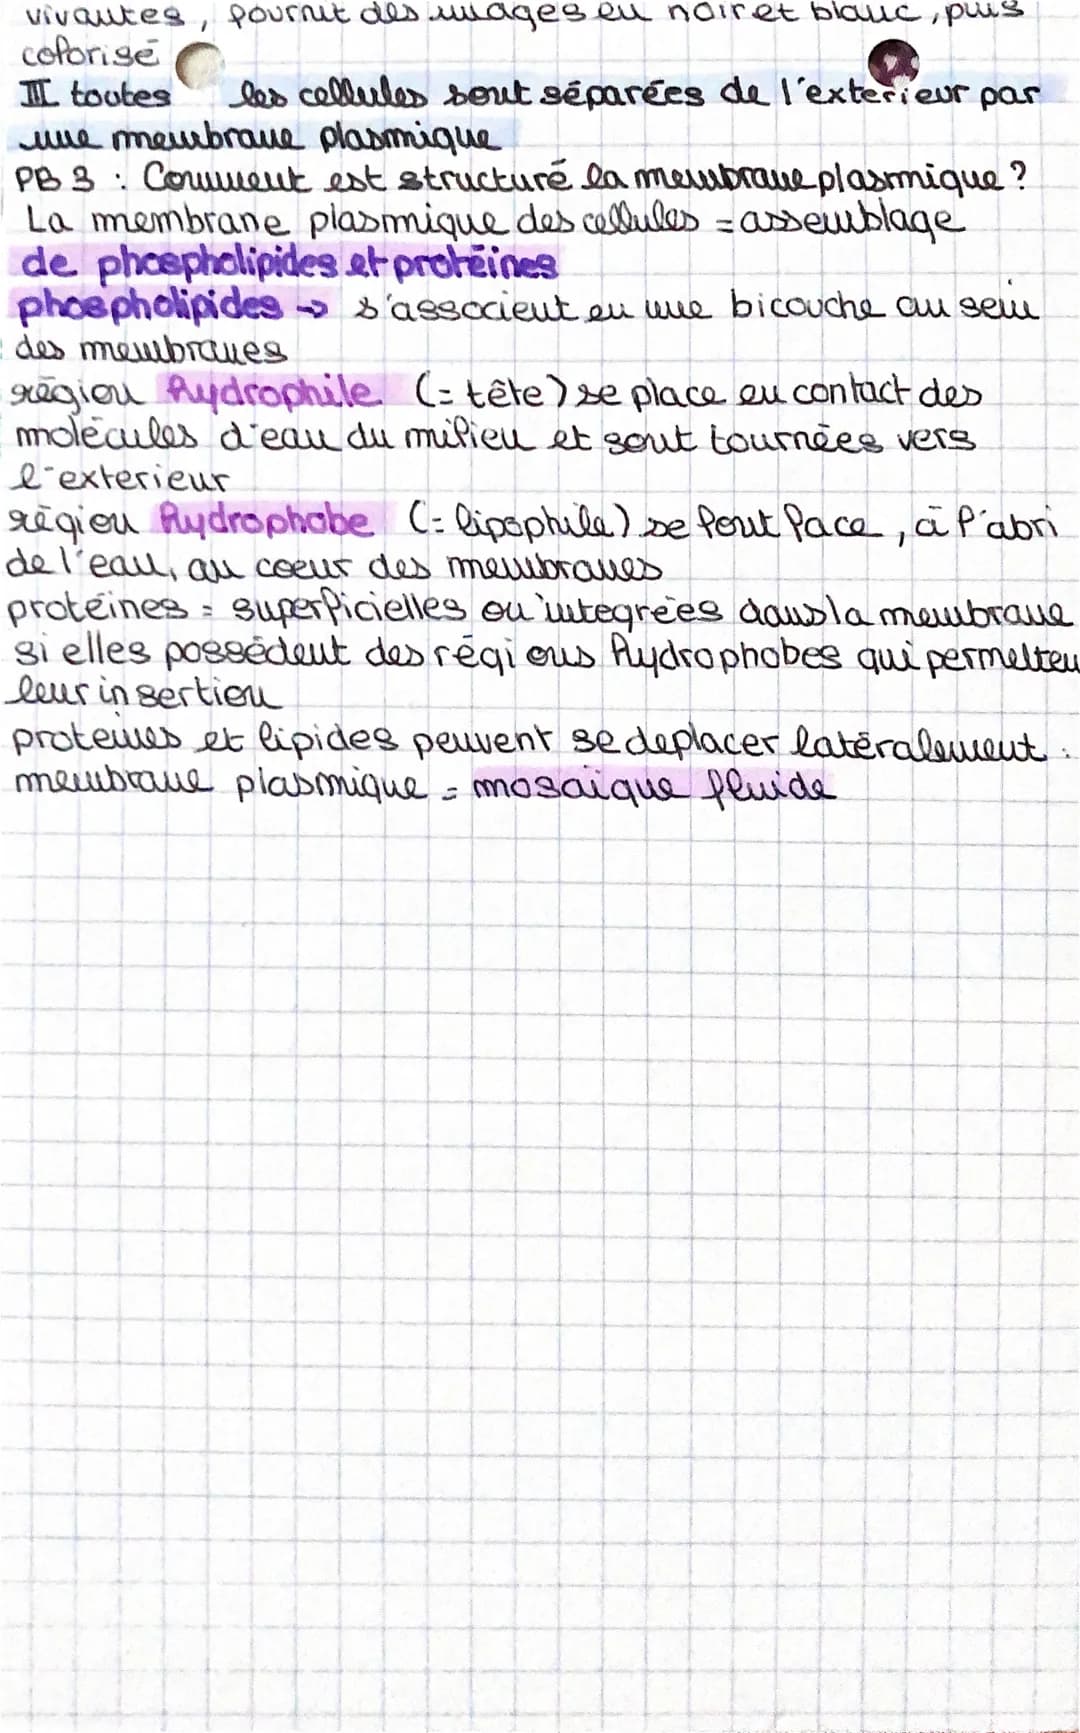 vivantes, fournit des images en noir et blanc, puis
colorisé
III toutes les cellules sont séparées de l'exterieur par
une membrane plasmique
PB 3 : Comment est structuré la membrane plasmique ?
La membrane plasmique des cellules = assemblage
de phospholipides et protéines
phospholipides → s'associent en une bicouche au sein
des membranes
région hydrophile (= tête) se place en contact des
molécules d'eau du milieu et sont tournées vers
l'exterieur
région hydrophobe (= lipophile) se font face, à l'abri
de l'eau, au coeur des membranes
protéines = superficielles ou integrées dans la membrane
si elles possédent des régions hydrophobes qui permetten
leur insertion
proteines et lipides peuvent se deplacer latéralement :
membrane plasmique = mosaique fluide